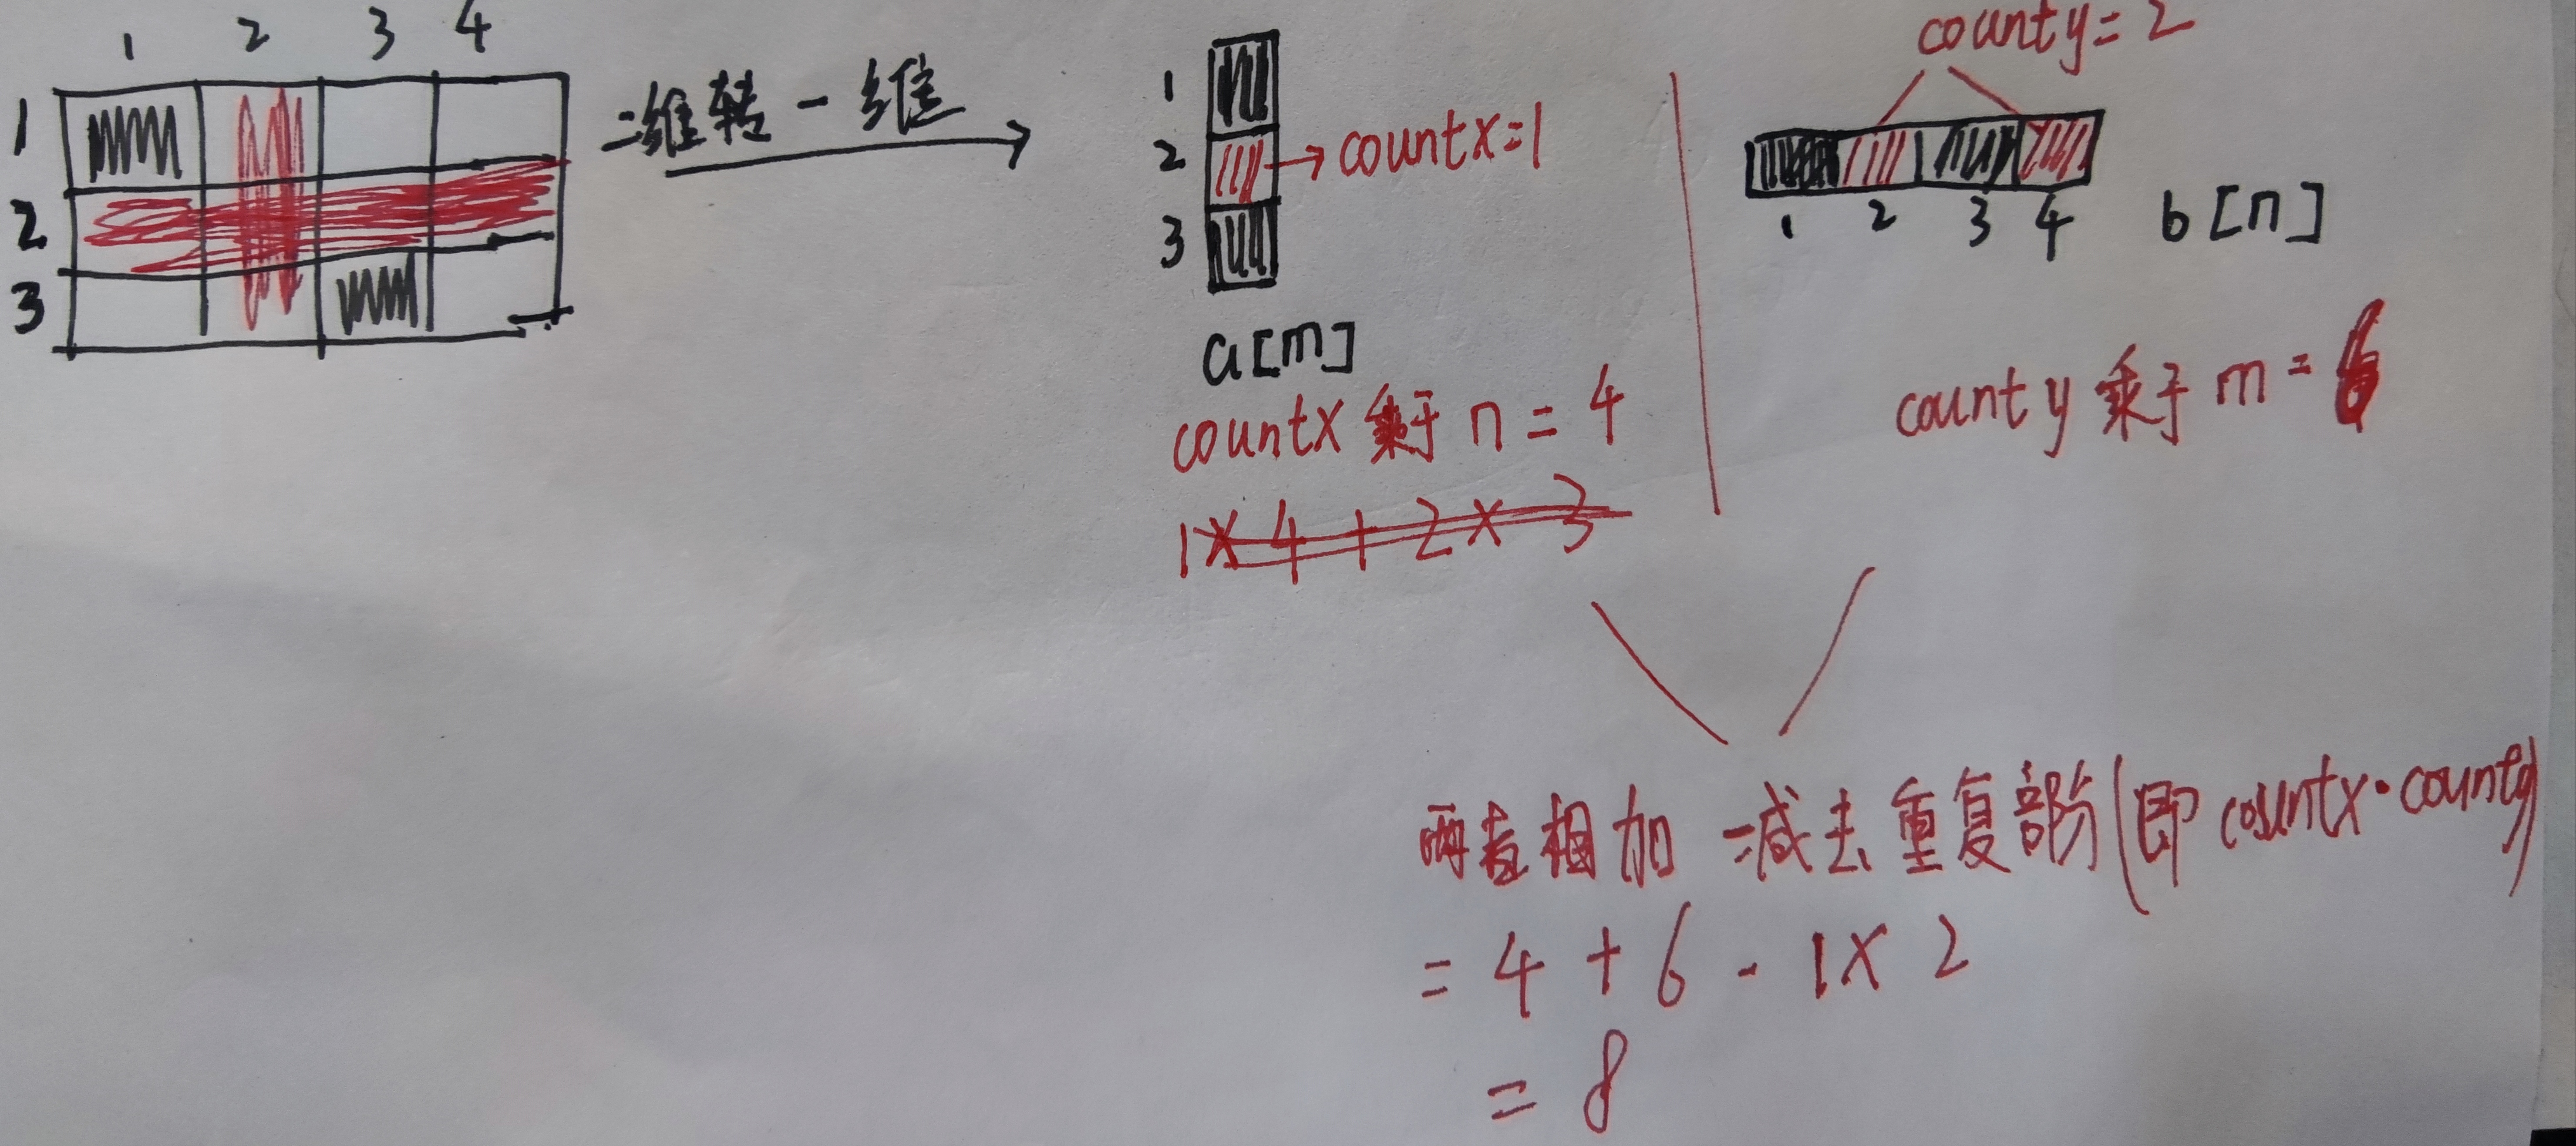 1 2 3 4
1
2
3
二维转一维
1
2
3
countx=1
a[m]
countx 乘于 n = 4
1×4+2×3
county=2
1 2 3 4
b[n]
county 乘于 m = 6
两者相加 - 减去重复部分(即 countx·county)
= 4 + 6 - 1×2
= 8